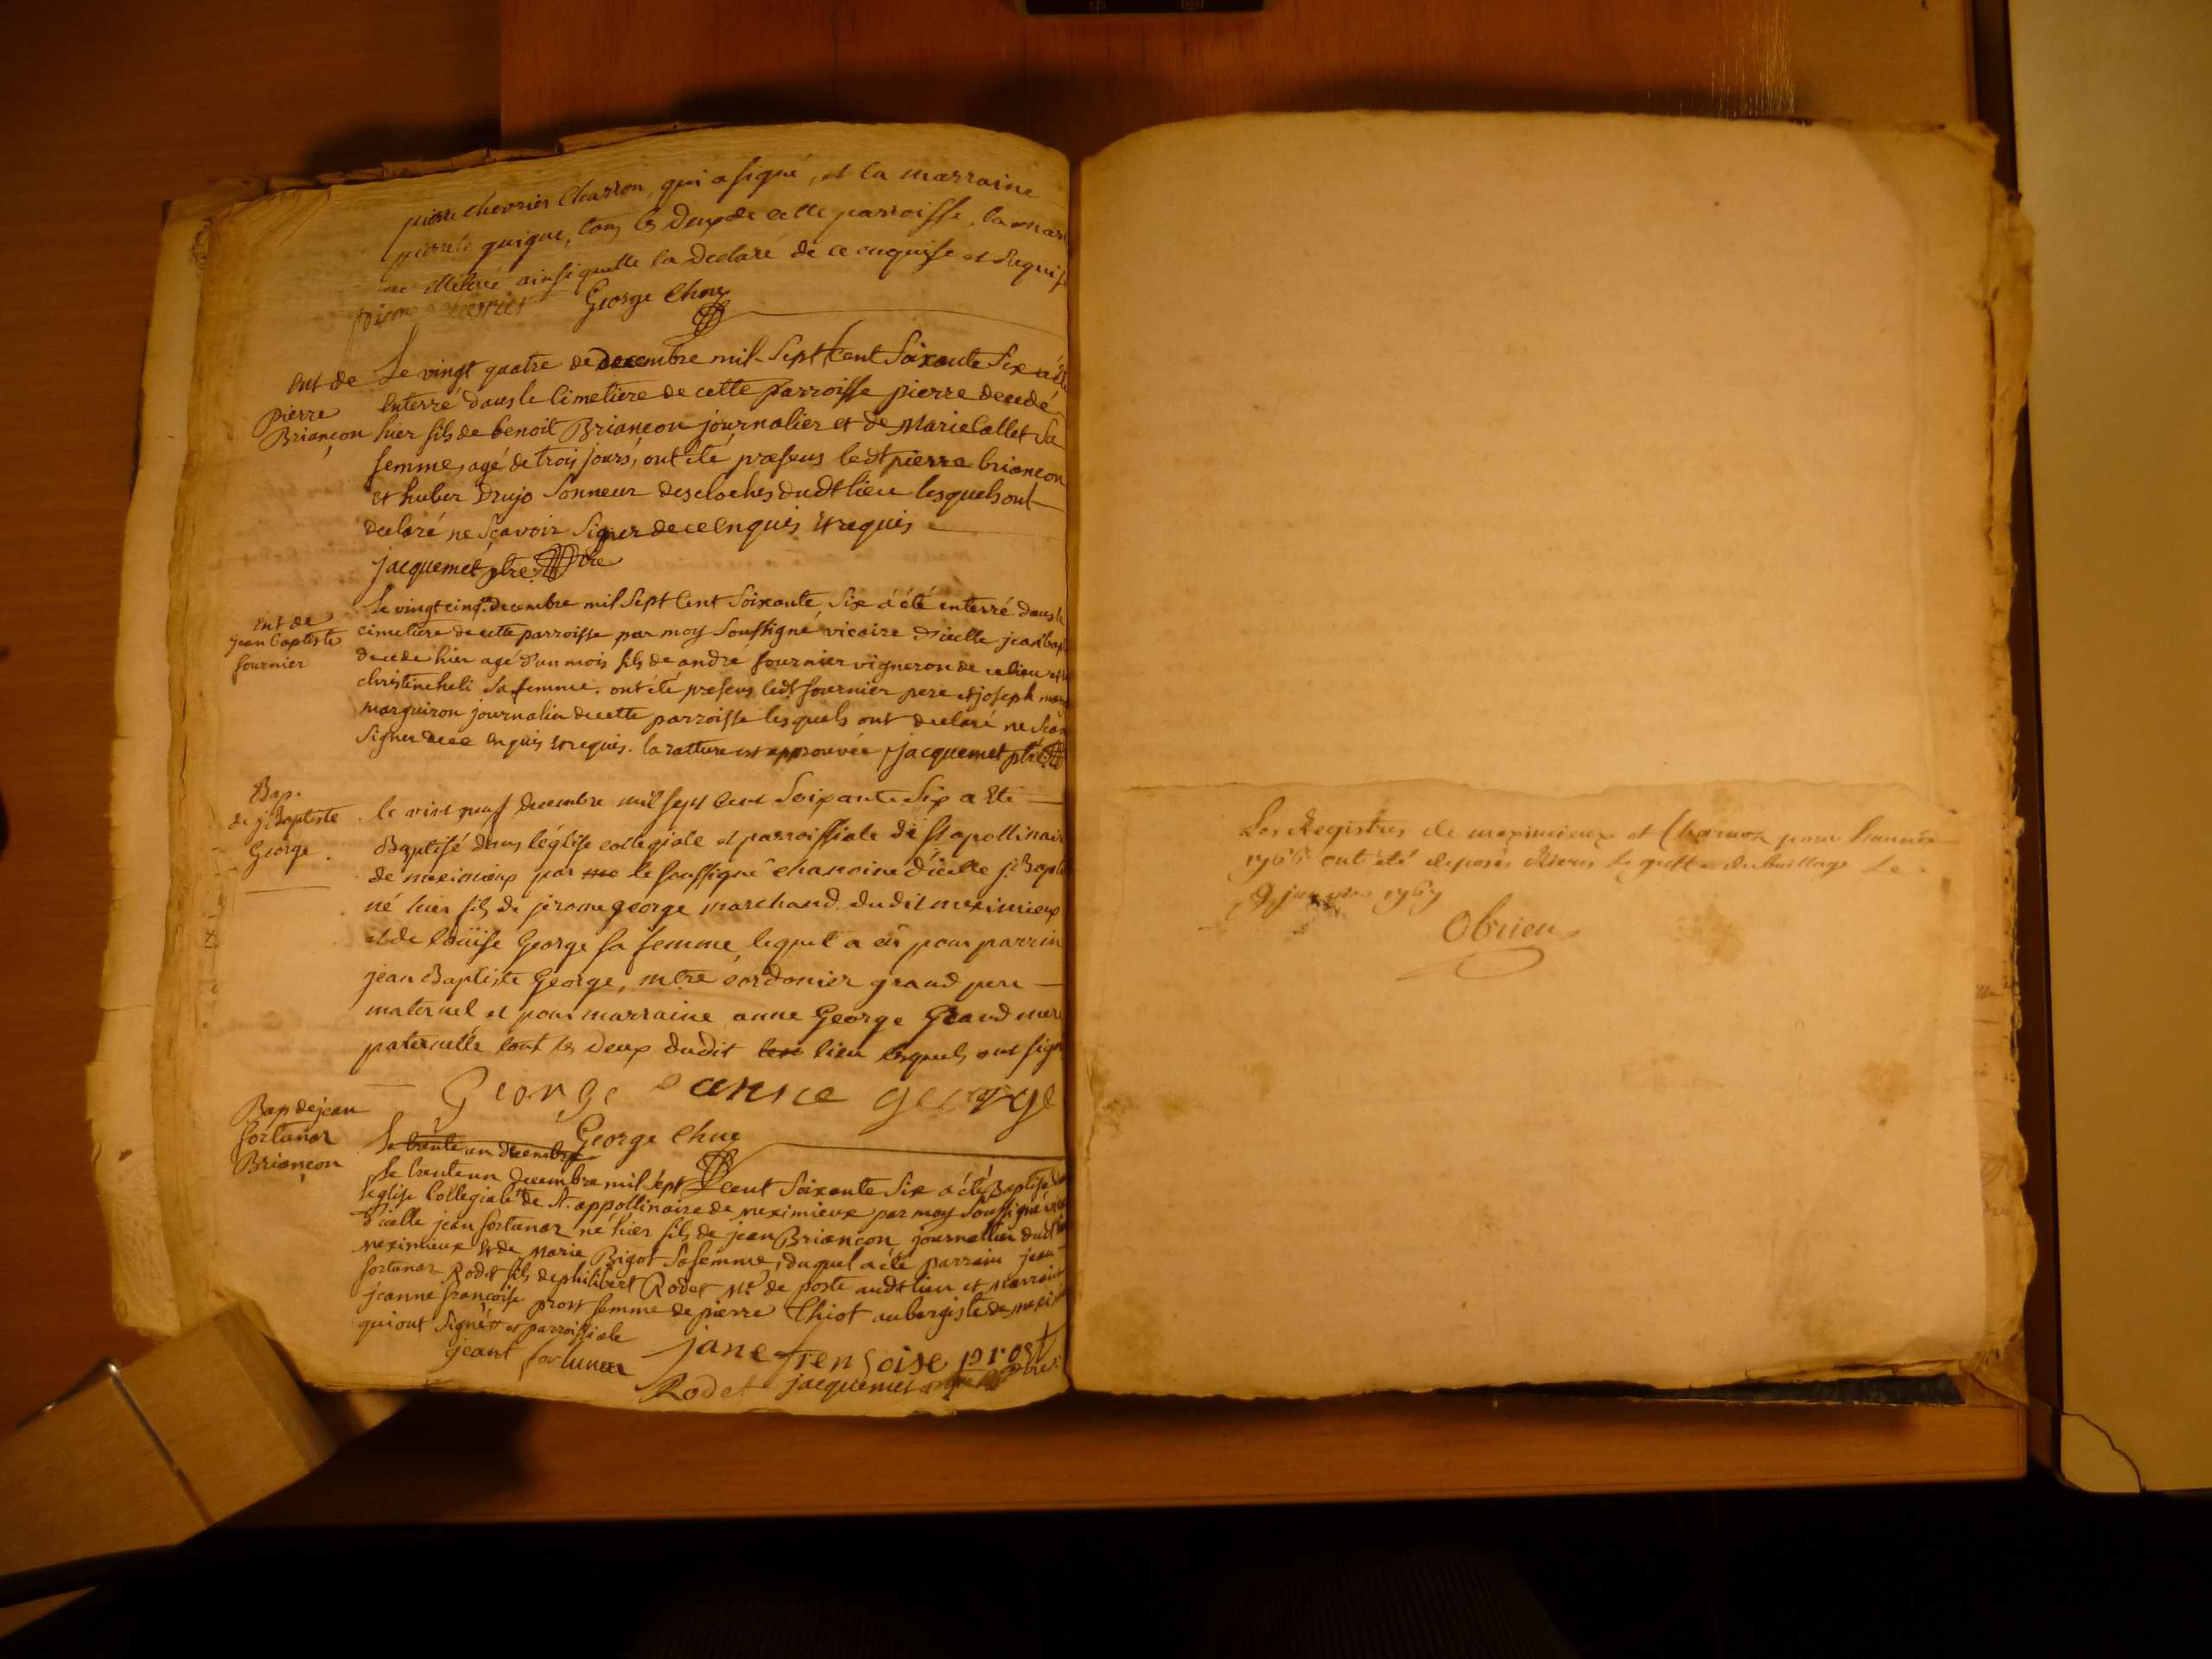 pierre chevrier Charron, qui a signé, et la marraine
guigue, tous les deux de cette parroisse, la mar
ne ainsi quelle la declaré de ce enquise et requise
George Chne
Ent de
pierre
Briançon
Le vingt quatre de decembre mil Sept Cent Soixante Six a été
enterré dans le Cimetiere de cette parroisse pierre decedé
hier fils de benoit Briançon journalier et de Marie Collet Sa
femme, agé de trois jours, ont été præsens ledt pierre briançon
et huber Drujo Sonneur des cloches dudt lieu lesquels ont
declaré ne Sçavoir Signer de ce enquis et requis
jacquemet ptre vre
Ent de
jean baptiste
fournier
le vingt cinq decembre mil Sept Cent Soixante Six a été enterré dans le
cimetiere de cette parroisse par moy Soussigné vicaire d'icelle jean bapt
decede hier agé d'un mois fils de andré fournier vigneron de ce lieu et
christine heli Sa femme. ont été presens ledt fournier pere et joseph
marguiron journalier de cette parroisse lesquels ont declaré ne Sçav
Signer de ce enquis et requis. la ratture est approuvée jacquemet ptre
Bap.
de j Baptiste
George.
le vint neuf decembre mil sept cent Soixante Six a ete
Baptisé dans léglise collegiale et parroissiale de St apollinair
de meximieux par me le soussigné chanoine d'icelle j. Bapte
né hier fils de jerome george marchand dudit meximieux
et de loüise George sa femme, lequel a eû pour parrin
jean Baptiste George, mtre cordonier grand pere
maternel et pour marraine anne George Grand mere
paternelle tout les deux dudit lieu lesquels ont signé
George anne george
George Chne
Bap de jean
fortunar
Briançon
Le trente un decembre
Le trente un decembre mil Sept cent Soixante Six a été Baptisé dan
leglise Collegiale tt de St. appollinaire de meximieux par moy Soussigné vic
d'icelle jean fortunar né hier fils de jean Briançon journallier dudt
meximieux et de Marie Bigot Sa femme, duquel a été parrain jean
fortunar Rodet fils de philibert Rodet Mt de poste audt lieu et Marraine
jeanne françoise prost femme de pierre Chiot aubergiste de mexi
qui ont Signé tt et parroissiale
jeant fortunar
Rodet
jane frensoise prost
jacquemet
Les Registres de meximieux et Charnoz pour l'année
1766 ont été deposés Rievers le greffe du bailliage le
9 janvier 1767
Obrieu